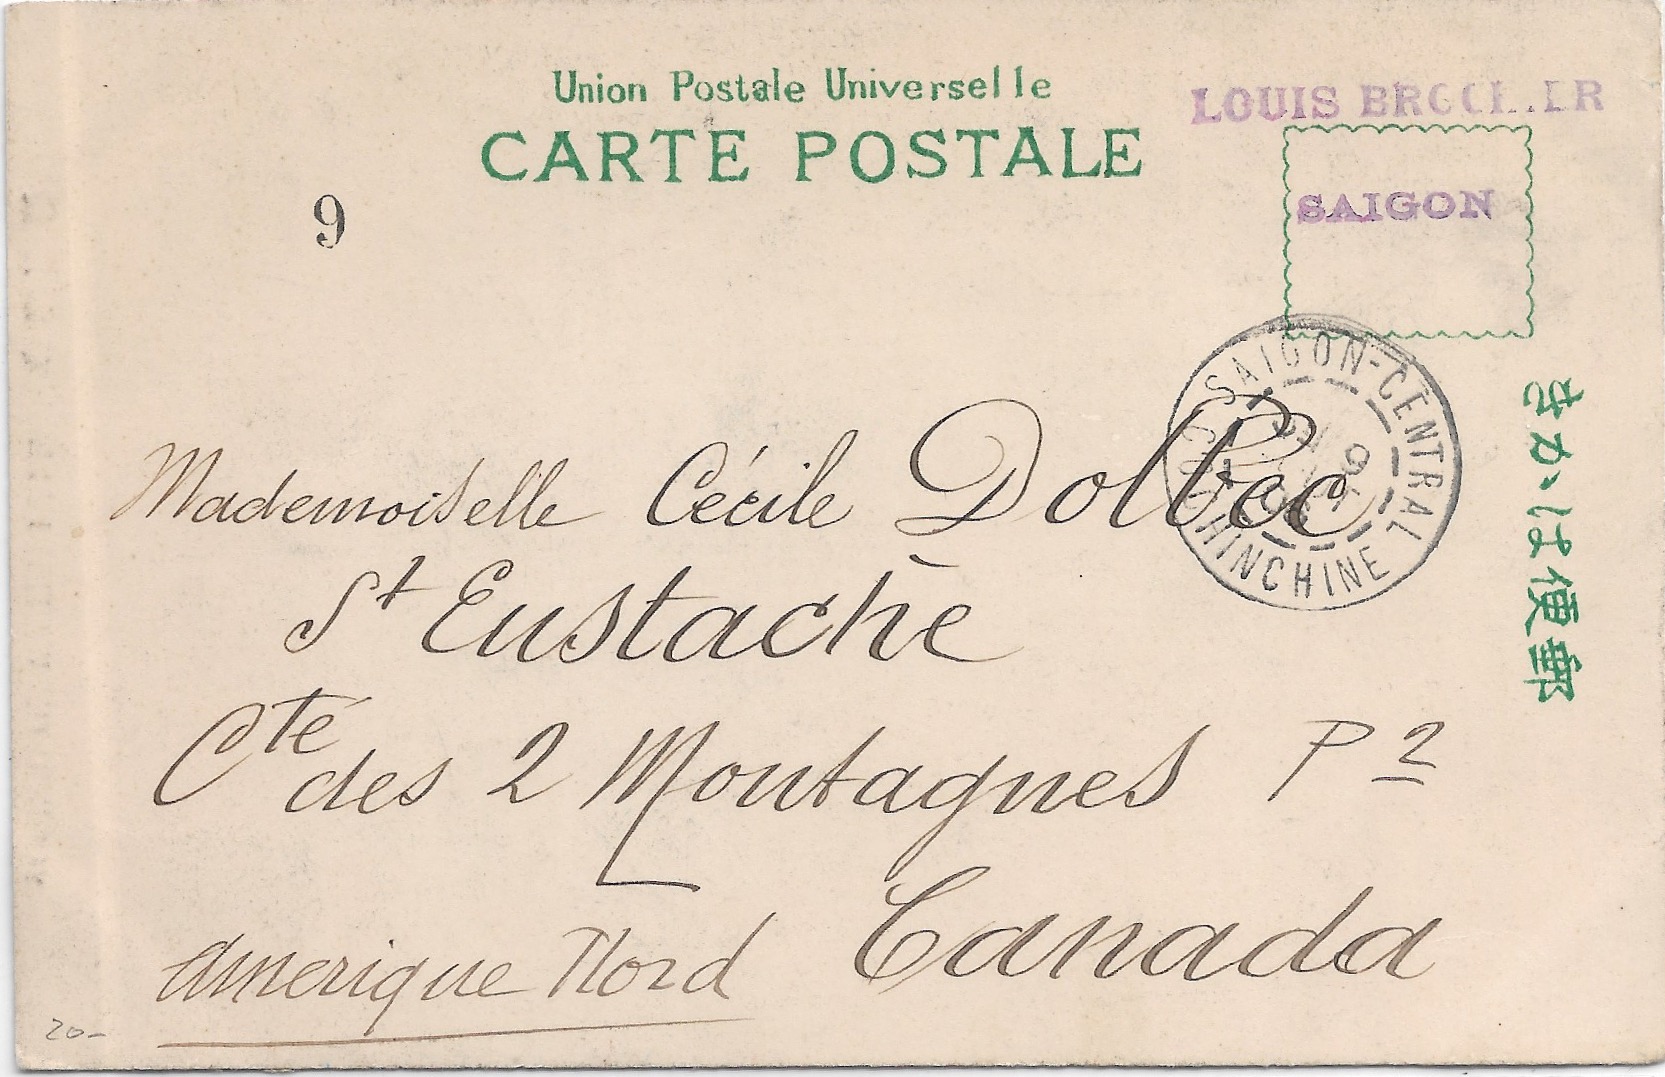 Union Postale Universelle
CARTE POSTALE
LOUIS
SAIGON
9
SAIGON-CENTRAL
COCHINCHINE
郵便はかき
Mademoiselle Cécile Dolbec
St Eustache
Cté des 2 Montagnes P2
Canada
Amerique Nord
20-